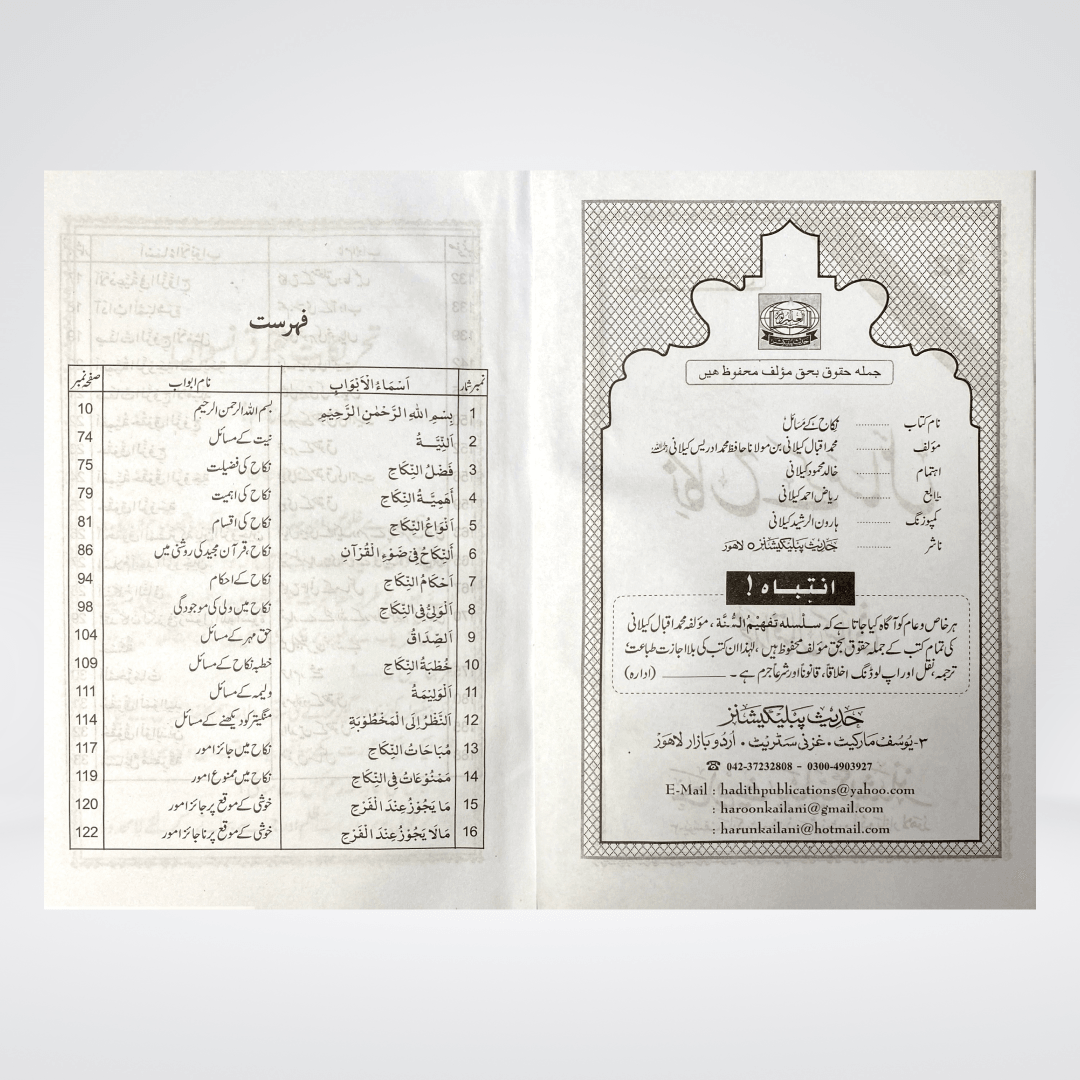 جملہ حقوق بحق مؤلف محفوظ ھیں
نام کتاب ............ نکاح کے مسائل
مؤلف ............ محمد اقبال کیلانی بن مولانا حافظ محمد ادریس کیلانی رحمہ اللہ
اہتمام ............ خالد محمود کیلانی
طابع ............ ریاض احمد کیلانی
کمپوزنگ ............ ہارون الرشید کیلانی
ناشر ............ حدیث پبلیکیشنز ٥ لاھور
انتباہ !
ہر خاص و عام کو آگاہ کیا جاتا ہے کہ سلسلہ تفھیم السُّنَّة ، مؤلفہ محمد اقبال کیلانی
کی تمام کتب کے جملہ حقوق بحق مؤلف محفوظ ہیں ، لہٰذا ان کتب کی بلا اجازت طباعت
ترجمہ، نقل اور اپ لوڈنگ اخلاقا، قانوناً اور شرعاً جرم ہے ۔ ــــــــــــ (ادارہ)
حدیث پبلیکیشنز
۳- یوسف مارکیٹ ۰ غزنی سٹریٹ ۰ اردو بازار لاھور
☎ 042-37232808 - 0300-4903927
E-Mail : hadithpublications@yahoo.com
: haroonkailani@gmail.com
: harunkailani@hotmail.com
فہرست
نمبر شمار اَسْمَاءُ الْاَبْوَابِ نام ابواب صفحہ نمبر
1 بِسْمِ اللهِ الرَّحْمٰنِ الرَّحِيْمِ بسم اللہ الرحمن الرحیم 10
2 اَلنِّيَّــةُ نیت کے مسائل 74
3 فَضْلُ النِّكَاحِ نکاح کی فضیلت 75
4 اَهَمِيَّـةُ النِّكَاحِ نکاح کی اہمیت 79
5 اَنْوَاعُ النِّكَاحِ نکاح کی اقسام 81
6 اَلنِّكَاحُ فِىْ ضَوْءِ الْقُرْآنِ نکاح، قرآن مجید کی روشنی میں 86
7 اَحْكَامُ النِّكَاحِ نکاح کے احکام 94
8 اَلْوَلِيُّ فِى النِّكَاحِ نکاح میں ولی کی موجودگی 98
9 اَلصِّدَاقُ حق مہر کے مسائل 104
10 خُطْبَةُ النِّكَاحِ خطبہ نکاح کے مسائل 109
11 اَلْوَلِيْمَةُ ولیمہ کے مسائل 111
12 اَلنَّظْرُ اِلَى الْمَخْطُوْبَةِ منگیتر کو دیکھنے کے مسائل 114
13 مُبَاحَاتُ النِّكَاحِ نکاح میں جائز امور 117
14 مَمْنُوْعَاتُ فِى النِّكَاحِ نکاح میں ممنوع امور 119
15 مَا يَجُوْزُ عِنْدَ الْفَرْحِ خوشی کے موقع پر جائز امور 120
16 مَالَا يَجُوْزُ عِنْدَ الْفَرْحِ خوشی کے موقع پر ناجائز امور 122